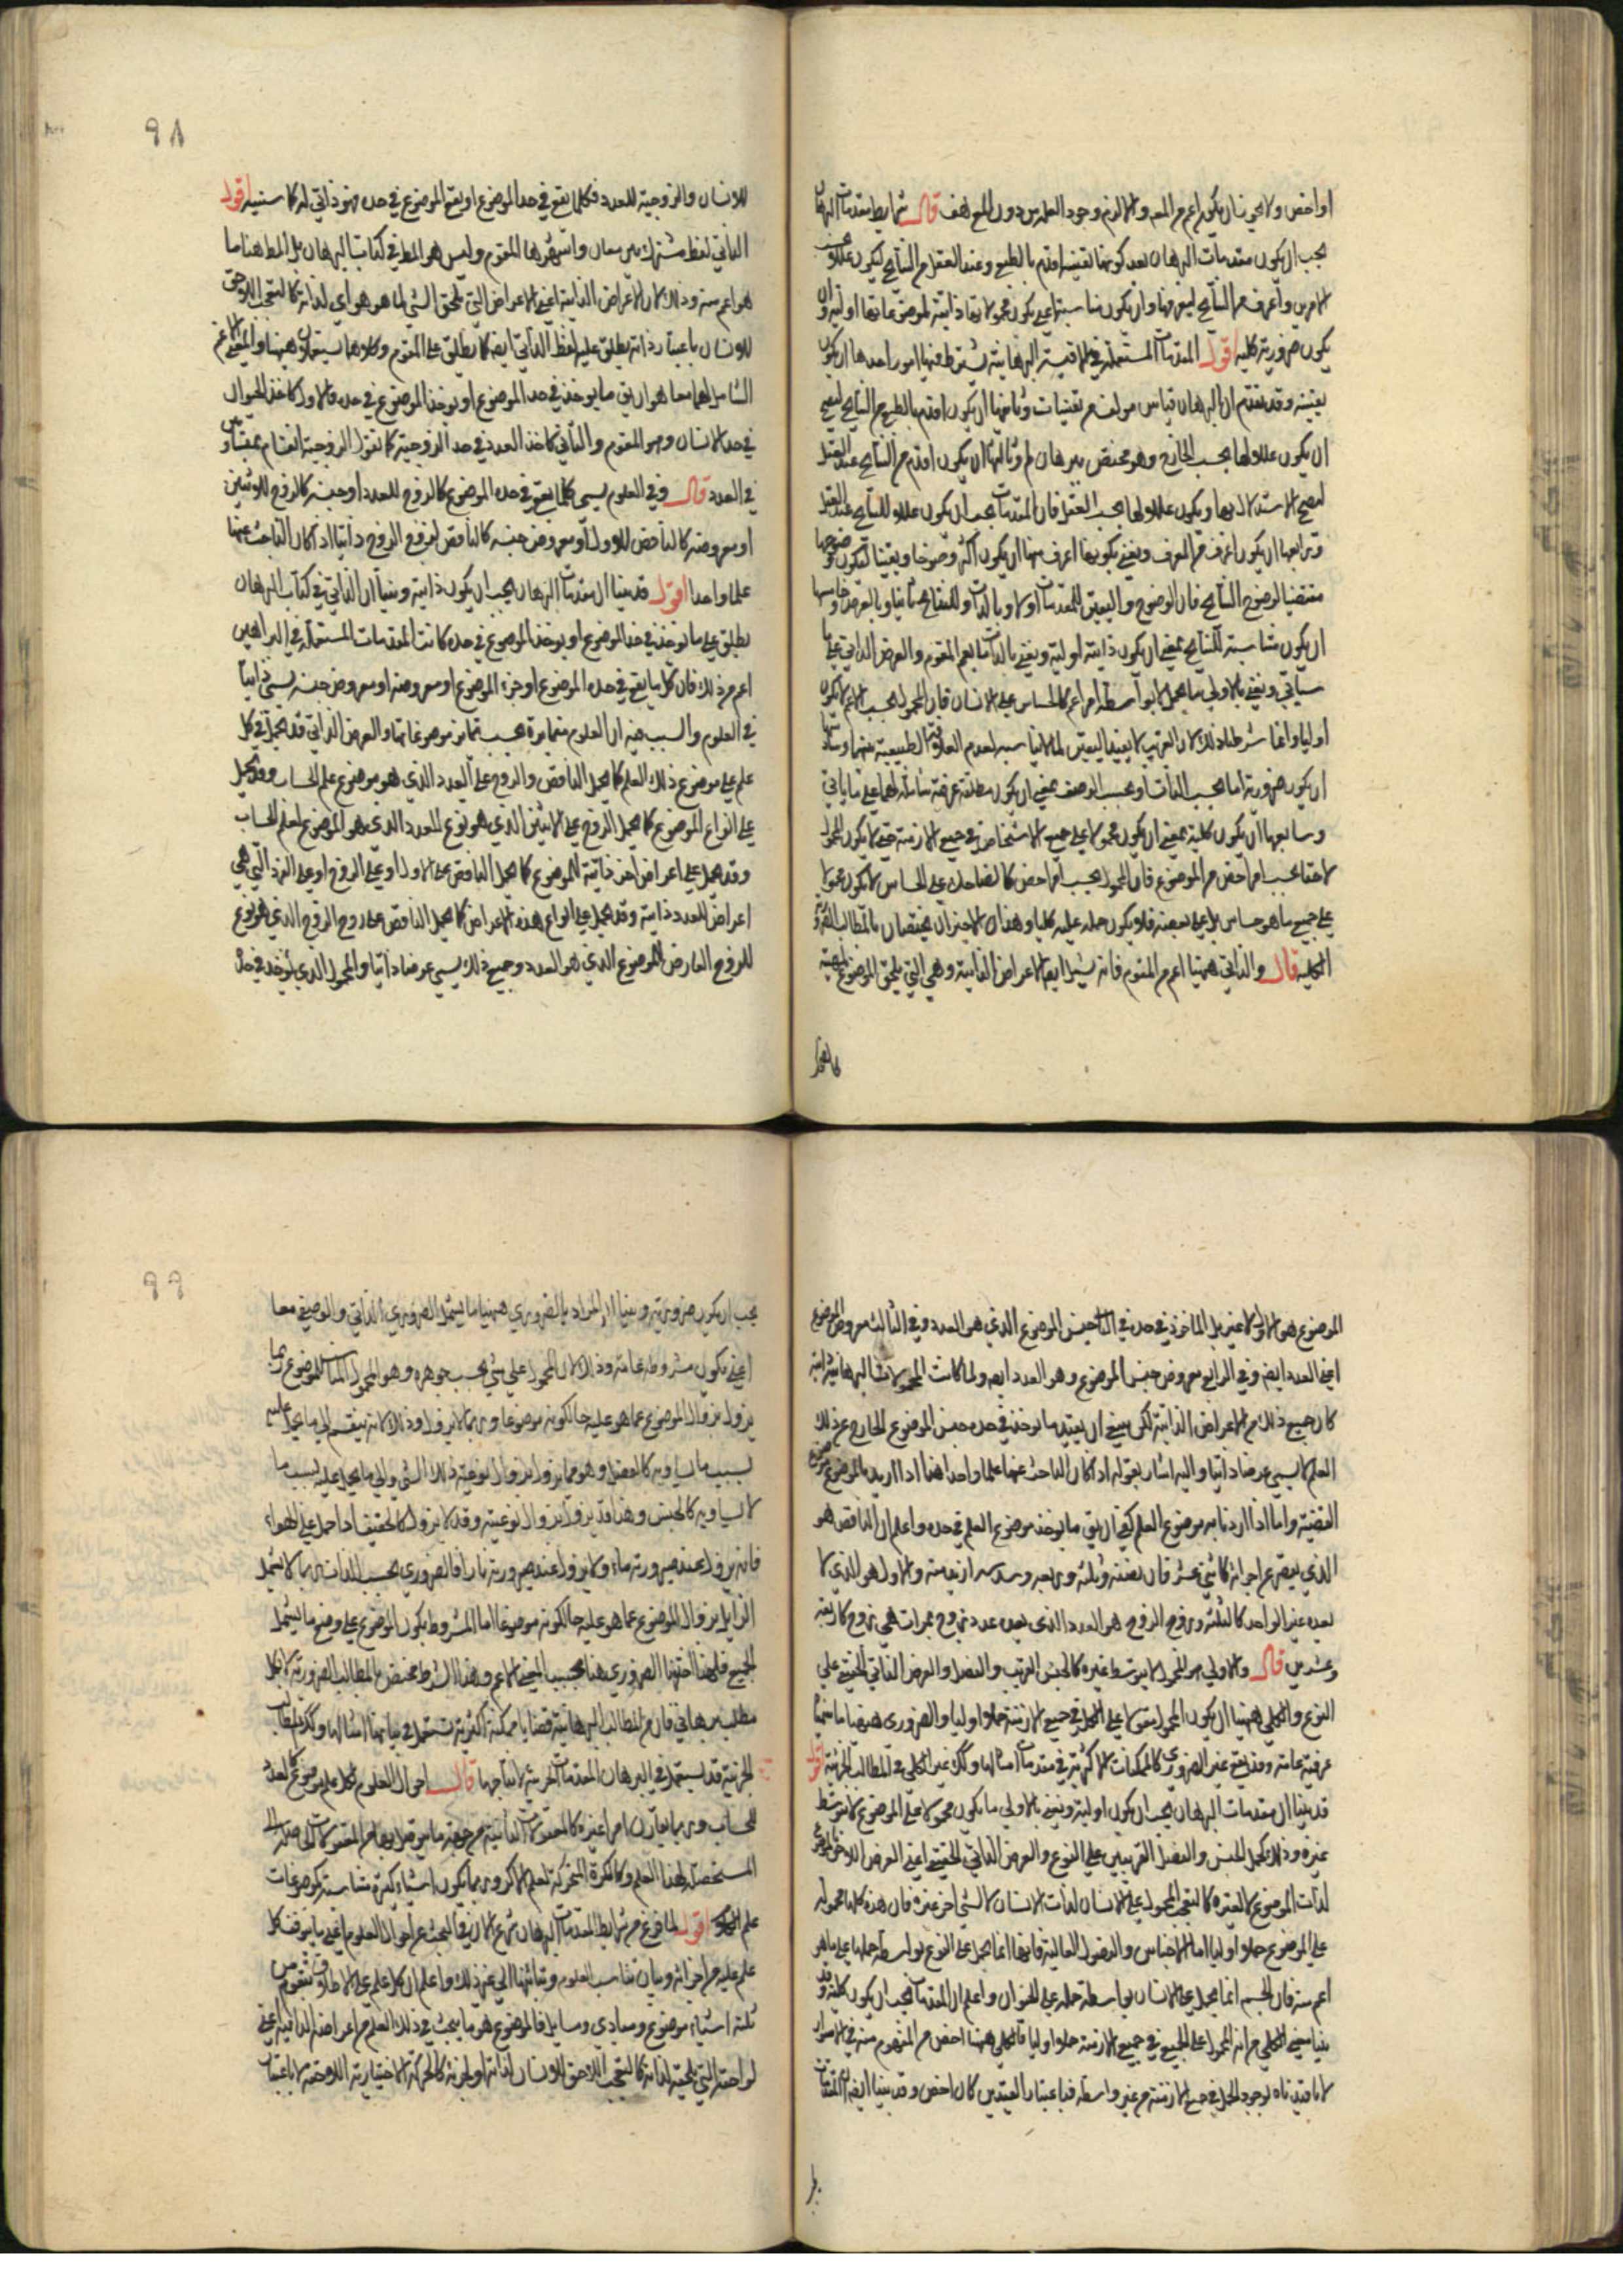 او اخص ولا يجوز ان يكون اعم من المعلول والا لزم وجود العلة بدون المعلول هف قال شرايط مقدمات البرهان
يجب ان يكون مقدمات البرهان بعد كونها يقينية اقدم بالطبع وعند العقل من النتايج ليكون عللا
الامرين واعرف من النتايج ليعرفها وان يكون مناسبتها على يكون محمولاتها ذاتية لموضوعاتها اولية وان
يكون ضرورية كلية اقول المقدمات المستعملة في الاقيسة البرهانية يشترط فيها امور احدها ان يكون
يقينية وقد تقدم ان البرهان قياس مولف من يقينيات وثانيها ان يكون اقدم بالطبع من النتايج ليصح
ان يكون عللا لها بحسب الخارج وهو مختص ببرهان لم وثالثها ان يكون اقدم من النتايج عند العقل
ليصح الاستدلال بها ويكون عللا لها بحسب العقل فان المقدمات يجب ان يكون عللا للنتايج عند العقل
ورابعها ان يكون اعرف من المعرف ونعني بكونها اعرف منها ان يكون اكثر وضوحا ويقينا ليكون وضوحها
مقتضيا لوضوح النتايج فان الوضوح واليقين للمقدمات اولا وبالذات وللنتايج ثانيا وبالعرض وخامسها
ان يكون مناسبة للنتايج بمعنى ان يكون ذاتية اولية ونعني بالذات ما يعم المقوم والعرض الذاتي على ما
سياتي ونعني بالاولي ما يحمل لا بواسطة امر اعم كالحساس على الانسان فان المحمول بحسب الاعم لا يكون
اوليا وانما شرطنا ذلك لان الغريب لا يفيد اليقين لما لا يناسبه لعدم العلاقة الطبيعية بينهما وسادسها
ان يكون ضرورية اما بحسب الذات او بحسب الوصف بمعنى ان يكون مطلقة عرفية شاملة لهما على ما ياتي
وسابعها ان يكون كلية بمعنى ان يكون محمولا على جميع الاشخاص في جميع الازمنة حتى لا يكون المحمول
لاحقا بحسب امر اخص من الموضوع فان المحمول بحسب امر اخص كالضاحك على الحساس لا يكون محمولا
على جميع ما هو حساس بل على بعضه فلا يكون حمله عليه كليا وهذان الاخيران يختصان بالمطالب الضرورية
الكلية قال والذاتي ههنا اعم من المقوم فانه يشمل ايضا الاعراض الذاتية وهي التي يلحق الموضوع لماهيته
كالتعجب
٩٨
للانسان والزوجية للعدد فكلما يقع في حد الموضوع او يقع الموضوع في حده فهو ذاتي له كما سنبينه اقول
الذاتي لفظ مشترك بين معان واشهرها المقوم وليس هو المط في كتاب البرهان بل المط ههنا ما
هو اعم منه وذلك لان الاعراض الذاتية اعني الاعراض التي تلحق الشي لما هو هو اي لذاته كالتعجب اللاحق
للانسان باعتبار ذاته يطلق عليه لفظ الذاتي ايضا كما يطلق على المقوم وكلاهما يستعملان ههنا والمعنى الاعم
الشامل لهما معا هو ان يق ما يوخذ في حد الموضوع او يوخذ الموضوع في حده فالاول كاخذ الحيوان
في حد الانسان وهو المقوم والثاني كاخذ العدد في حد الزوجية كما نقول الزوجية انقسام بمتساويين
في العدد قال وفي العلوم يسمى كلما يقع في حده الموضوع كالزوج للعدد او جنسه كالزوج للاثنين
او معروضه كالناقص للاول او معروض جنسه كالناقص لزوج الزوج ذاتيا اذ اكان الباحث عنها
علما واحدا اقول قد بينا ان مقدمات البرهان يجب ان يكون ذاتية وبينا ان الذاتي في كتاب البرهان
يطلق على ما يوخذ في حد الموضوع او يوخذ الموضوع في حده كانت المقدمات المستعملة في البراهين
اعم من ذلك فان كل ما يقع في حده الموضوع او جزء الموضوع او معروضه او معروض جنسه يسمى ذاتيا
في العلوم والسبب فيه ان العلوم متمايزة بحسب تمايز موضوعاتها والعرض الذاتي قد يحمل في كل
علم على موضوع ذلك العلم كما يحمل الناقص والزوج على العدد الذي هو موضوع علم الحساب وقد يحمل
على انواع الموضوع كما يحمل الزوج على الاثنين الذي هو نوع للعدد الذي هو الموضوع لعلم الحساب
وقد يحمل على اعراض اخر ذاتية للموضوع كما يحمل الناقص على الاول او على الزوج او على الفرد التي هي
اعراض للعدد ذاتية وقد يحمل على انواع هذه الاعراض كما يحمل الناقص على زوج الزوج الذي هو نوع
للزوج العارض للموضوع الذي هو العدد وجميع ذلك يسمى عرضا ذاتيا والمحمول الذي يوخذ في حده
الموضوع هو الاول لا غير بل الماخوذ في حده في الثاني جنس الموضوع الذي هو العدد وفي الثالث معروض الموضوع
اعني العدد ايضا وفي الرابع معروض جنس الموضوع وهو العدد ايضا ولما كانت المحمولات البرهانية ذاتية
كان جميع ذلك من الاعراض الذاتية لكن ينبغي ان يقيد ما يوخذ في حده جنس الموضوع الخارج عن ذلك
العلم لا يسمى عرضا ذاتيا واليه اشار بقوله اذا كان الباحث عنها علما واحدا هذا اذا اريد بالموضوع موضوع
القضية واما اذا اردنا به موضوع العلم كفى ان يق ما يوخذ موضوع العلم في حده واعلم ان الناقص هو
الذي ينقص عن اجزائه كاثني عشر فان نصفه وثلثه وربعه وسدسه ازيد منه والاول هو الذي لا
يعده غير الواحد كالثلثة وزوج الزوج هو العدد الذي يعده عدد زوج بمرات هي زوج كاربعة
وعشرين قال والاولي هو المحمول لا بتوسط غيره كالجنس القريب والفصل والعرض الذاتي الحقيقي على
النوع والكلي ههنا ان يكون المحمول مقولا على الكل في جميع الازمنة حملا اوليا والضروري ههنا ما يشمل
عرفية عامة وقد يقع غير الضروري كالممكنات الاكثرية في مقدمات امثالها وكذلك غير الكلي في المطالب الجزئية اقول
قد بينا ان مقدمات البرهان يجب ان يكون اولية ونعني بالاولي ما يكون محمولا على الموضوع لا بتوسط
غيره وذلك كحمل الجنس والفصل القريبين على النوع والعرض الذاتي الحقيقي اعني العرض اللاحق
لذات الموضوع لا لغيره كالتعجب المحمول على الانسان لذات الانسان لا لشي اخر غيره فان هذه كلها محمولة
على الموضوع حملا اوليا اما الاجناس والفصول العالية فانها انما يحمل على النوع بواسطة حملها على ما هو
اعم منه فان الجسم انما يحمل على الانسان بواسطة حمله على الحيوان واعلم ان المقدمات يجب ان يكون كلية وقد
بينا معنى الكلي من انه المحمول على الجميع في جميع الازمنة حملا اوليا فالكلي ههنا اخص من المفهوم منه في الاسوار
لانا قيدناه بوجود الحمل في جميع الازمنة من غير واسطة فباعتبار القيدين كان اخص وقد بينا ايضا ان المقدمات
٩٩
يجب ان يكون ضرورية وبينا ان المراد بالضروري ههنا ما يشمل الضروري الذاتي والوصفي معا
اعني يكون مشروطة عامة وذلك لان المحمول على شي بحسب جوهره وهو المحمول المناسب للموضوع ربما
يزول بزوال الموضوع عما هو عليه حال كونه موضوعا وربما لا يزول وذلك لانه ينقسم الى ما يحمل عليه
بسبب ما يساويه كالفصل وهو مما يزول بزوال نوعية ذلك الشي والى ما يحمل عليه بسبب ما
لا يساويه كالجنس وهذا قد يزول بزوال نوعيته وقد لا يزول كالخفيف اذا حمل على الهواء
فانه يزول عند صيرورته ماء ولا يزول عند صيرورته نارا فالضروري بحسب الذات ربما لا يشمل
الزايل بزوال الموضوع عما هو عليه حال كونه موضوعا اما المشروط بكون الموضوع على وضع ما يشمل
الجميع فلهذا اخذنا الضروري هنا بحسب المعنى الاعم وهذا الشرط مختص بالمطالب الضرورية لا بكل
مطلب برهاني فان من المطالب البرهانية قضايا ممكنة اكثرية تستعمل في بيانها امثالها وكذلك المطالب
الجزئية قد يستعمل في البرهان المقدمات الجزئية لانتاجها قال احوال العلوم لكل علم موضوع كالعدد
للحساب وربما يقارن امرا غيره كالمعقولات الثانية من جهة ما يتوصل بها من المعقولات الحاصلة الى
المستحصلة لهذا العلم وكالكرة المتحركة لعلم الاكر وربما يكون اشياء كثيرة متناسبة كموضوعات
علم اقول لما فرغ من شرايط المقدمات البرهان شرع الان في البحث عن احوال العلوم اعني ما يتوقف كل
علم عليه من اجزائه وبيان تناسب العلوم وتباينها الى غير ذلك واعلم ان كل علم على الاطلاق يتقوم من
ثلثة اشياء موضوع ومبادي ومسايل فالموضوع هو ما يبحث في ذلك العلم من اعراضه الذاتية اعني
لواحقه التي تلحقه لذاته كالتعجب اللاحق للانسان لذاته او لجزئه كالحركة الاختيارية اللاحقة له باعتبار